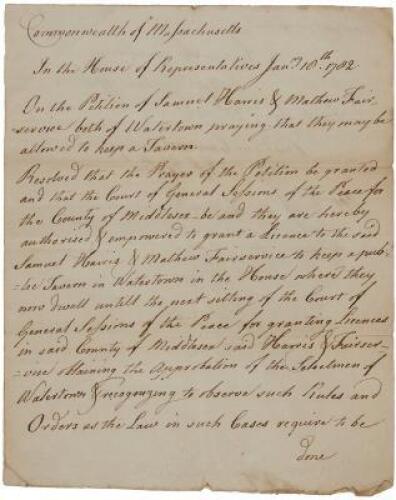 Commonwealth of Massachusetts
In the House of Representatives Jany 18th 1782
On the Petition of Samuel Harris & Mathew Fair-
service both of Watertown praying that they may be
allowed to keep a Tavern.
Resolved that the Prayer of the Petition be granted
and that the Court of General Sessions of the Peace for
the County of Middlesex be and they are hereby
authorised & empowered to grant a Licence to the said
Samuel Harris & Mathew Fairservice to keep a pub-
-lic Tavern in Watertown in the House where they
now dwell untill the next sitting of the Court of
General Sessions of the Peace for granting Licences
in said County of Middlesex said Harris & Fairser-
-vice obtaining the Approbation of the Selectmen of
Watertown & recognizing to observe such Rules and
Orders as the Law in such Cases require to be
done